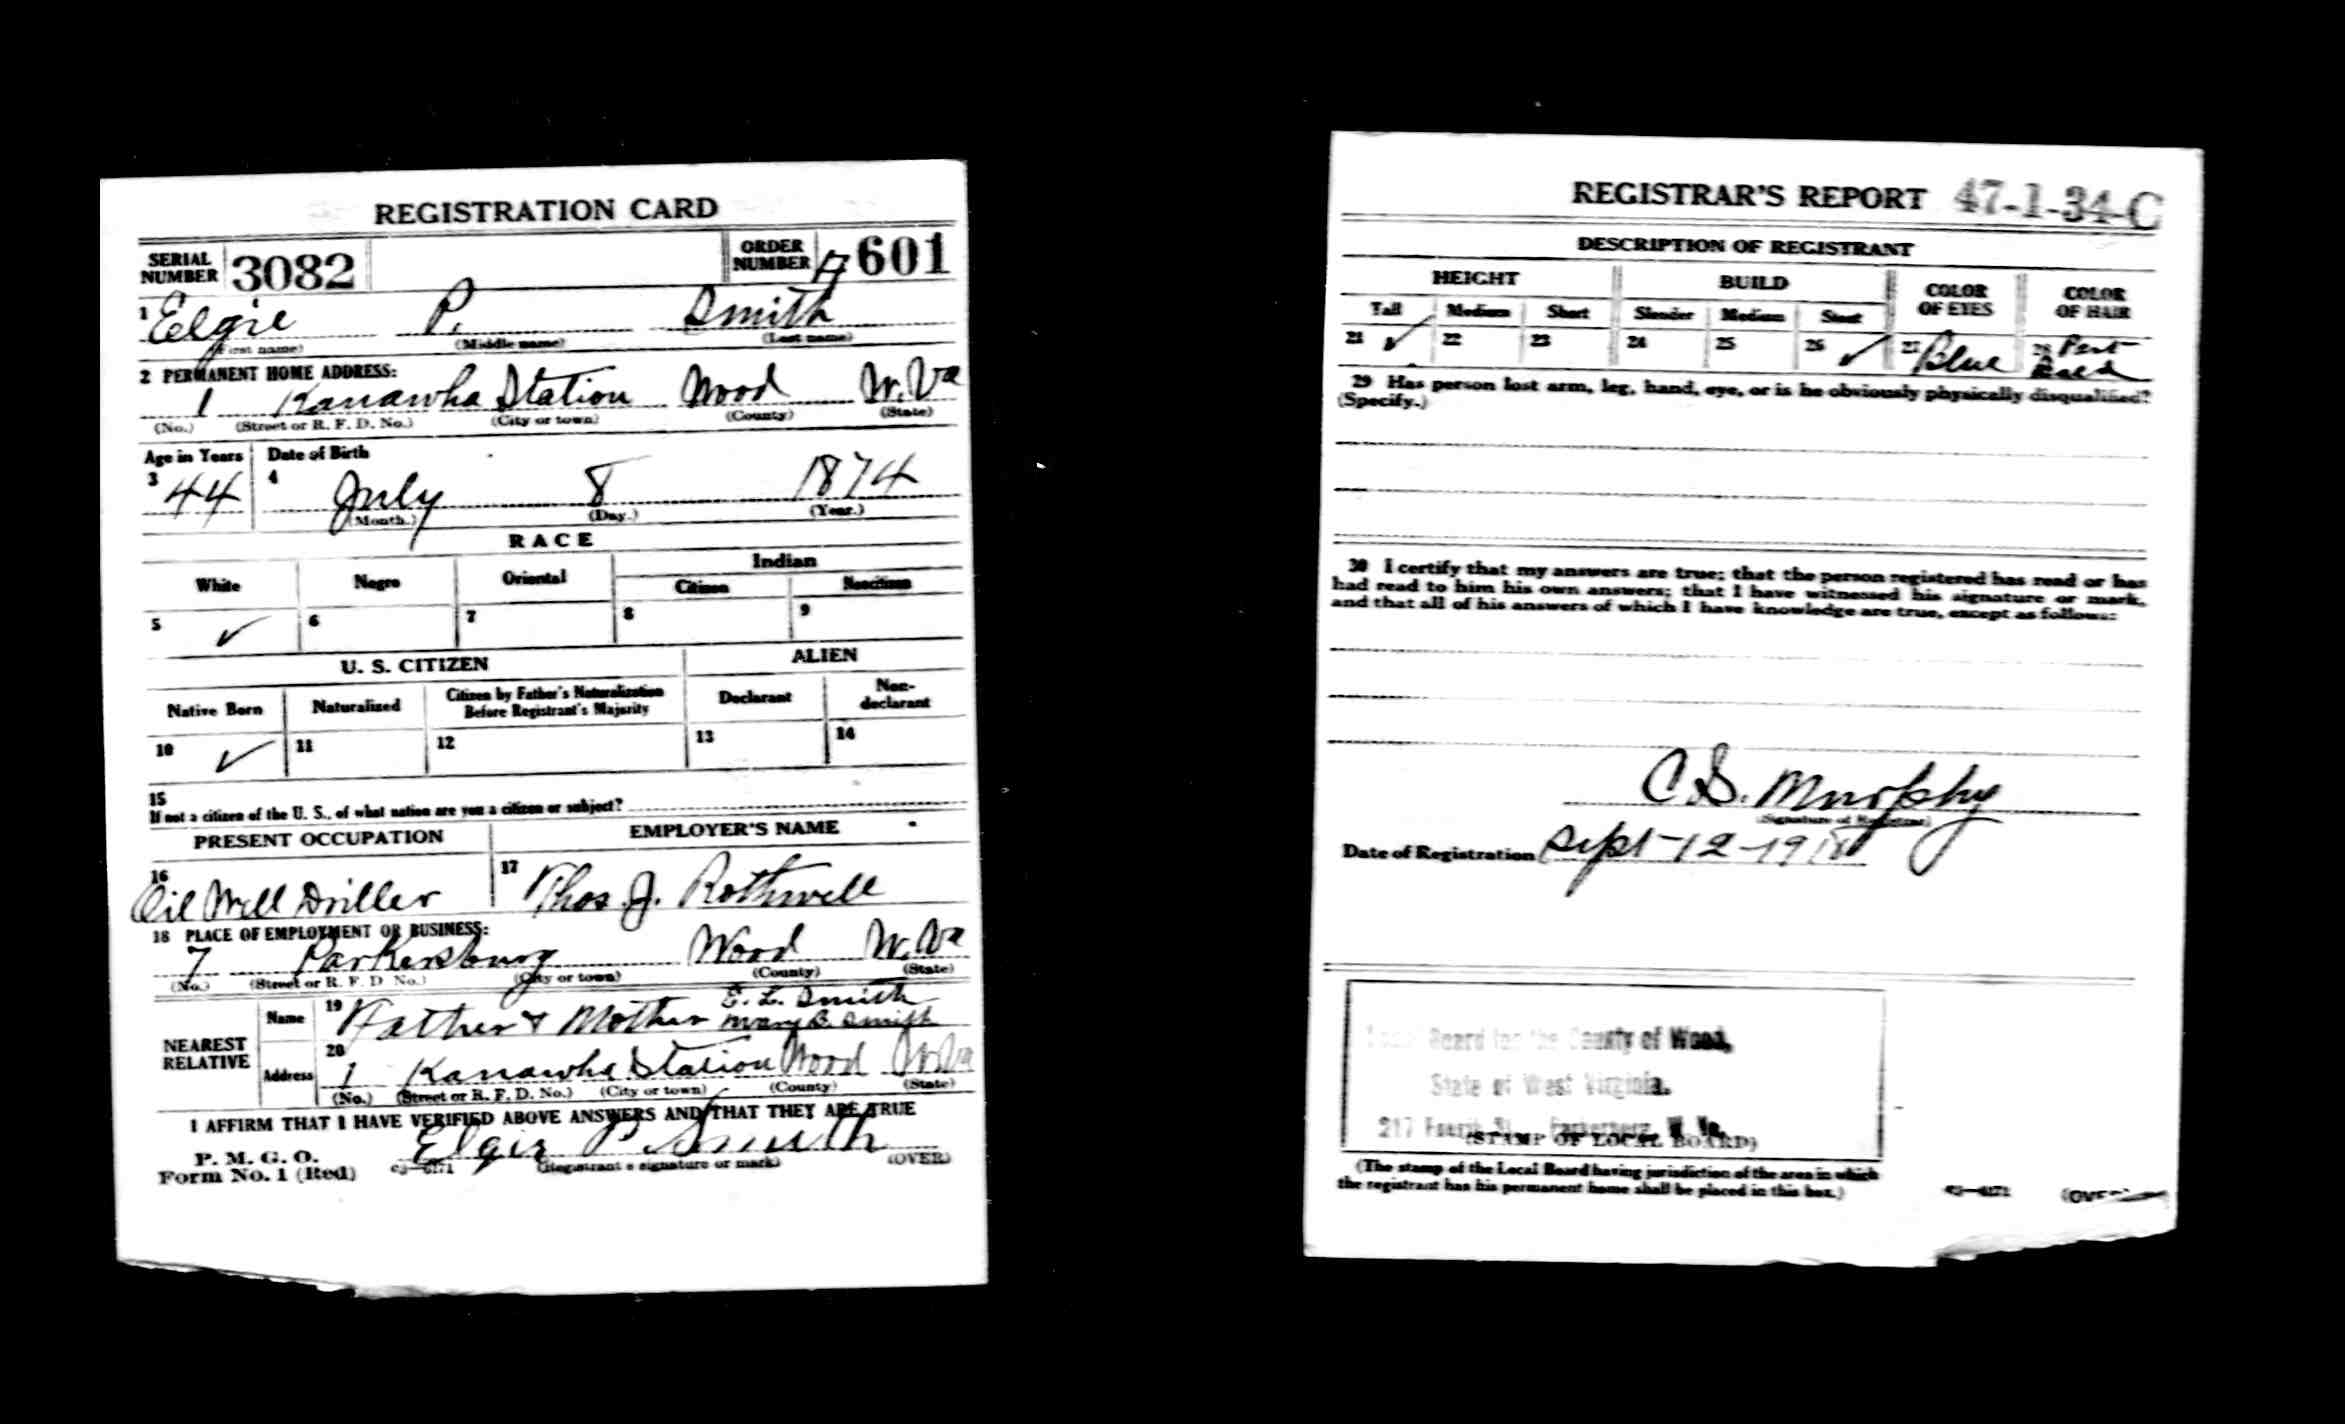 REGISTRATION CARD
SERIAL NUMBER 3082
ORDER NUMBER A 601
1 Elgie P. Smith
(First name) (Middle name) (Last name)
2 PERMANENT HOME ADDRESS:
1 Kanawha Station Wood W. Va
(No.) (Street or R. F. D. No.) (City or town) (County) (State)
Age in Years Date of Birth
3 44 4 July 8 1874
(Month.) (Day.) (Year.)
RACE
White Negro Oriental Indian
Citizen Noncitizen
5 ✓ 6 7 8 9
U. S. CITIZEN ALIEN
Native Born Naturalized Citizen by Father's Naturalization Before Registrant's Majority Declarant Non-declarant
10 ✓ 11 12 13 14
15
If not a citizen of the U. S., of what nation are you a citizen or subject?
PRESENT OCCUPATION EMPLOYER'S NAME
16 Oil Well Driller 17 Thos. J. Rothwell
18 PLACE OF EMPLOYMENT OR BUSINESS:
7 Parkersburg Wood W. Va
(No.) (Street or R. F. D No.) (City or town) (County) (State)
NEAREST RELATIVE
Name 19 Father & Mother E. L. Smith
Mary B. Smith
Address 20 1 Kanawha Station Wood W. Va
(No.) (Street or R. F. D. No.) (City or town) (County) (State)
I AFFIRM THAT I HAVE VERIFIED ABOVE ANSWERS AND THAT THEY ARE TRUE
P. M. G. O.
Form No. 1 (Red) 03—6171 Elgie P Smith
(Registrant's signature or mark) (OVER)
REGISTRAR'S REPORT 47-1-34-C
DESCRIPTION OF REGISTRANT
HEIGHT BUILD COLOR OF EYES COLOR OF HAIR
Tall Medium Short Slender Medium Stout
21 ✓ 22 23 24 25 26 ✓ 27 Blue 28 Part Bald
29 Has person lost arm, leg, hand, eye, or is he obviously physically disqualified?
(Specify.)
30 I certify that my answers are true; that the person registered has read or has
had read to him his own answers; that I have witnessed his signature or mark,
and that all of his answers of which I have knowledge are true, except as follows:
C. S. Murphy
(Signature of Registrar)
Date of Registration Sept-12-1918
Local Board for the County of Wood,
State of West Virginia.
217 Fourth St. Parkersburg, W. Va.
(STAMP OF LOCAL BOARD)
(The stamp of the Local Board having jurisdiction of the area in which
the registrant has his permanent home shall be placed in this box.)
03—6171 (OVER)